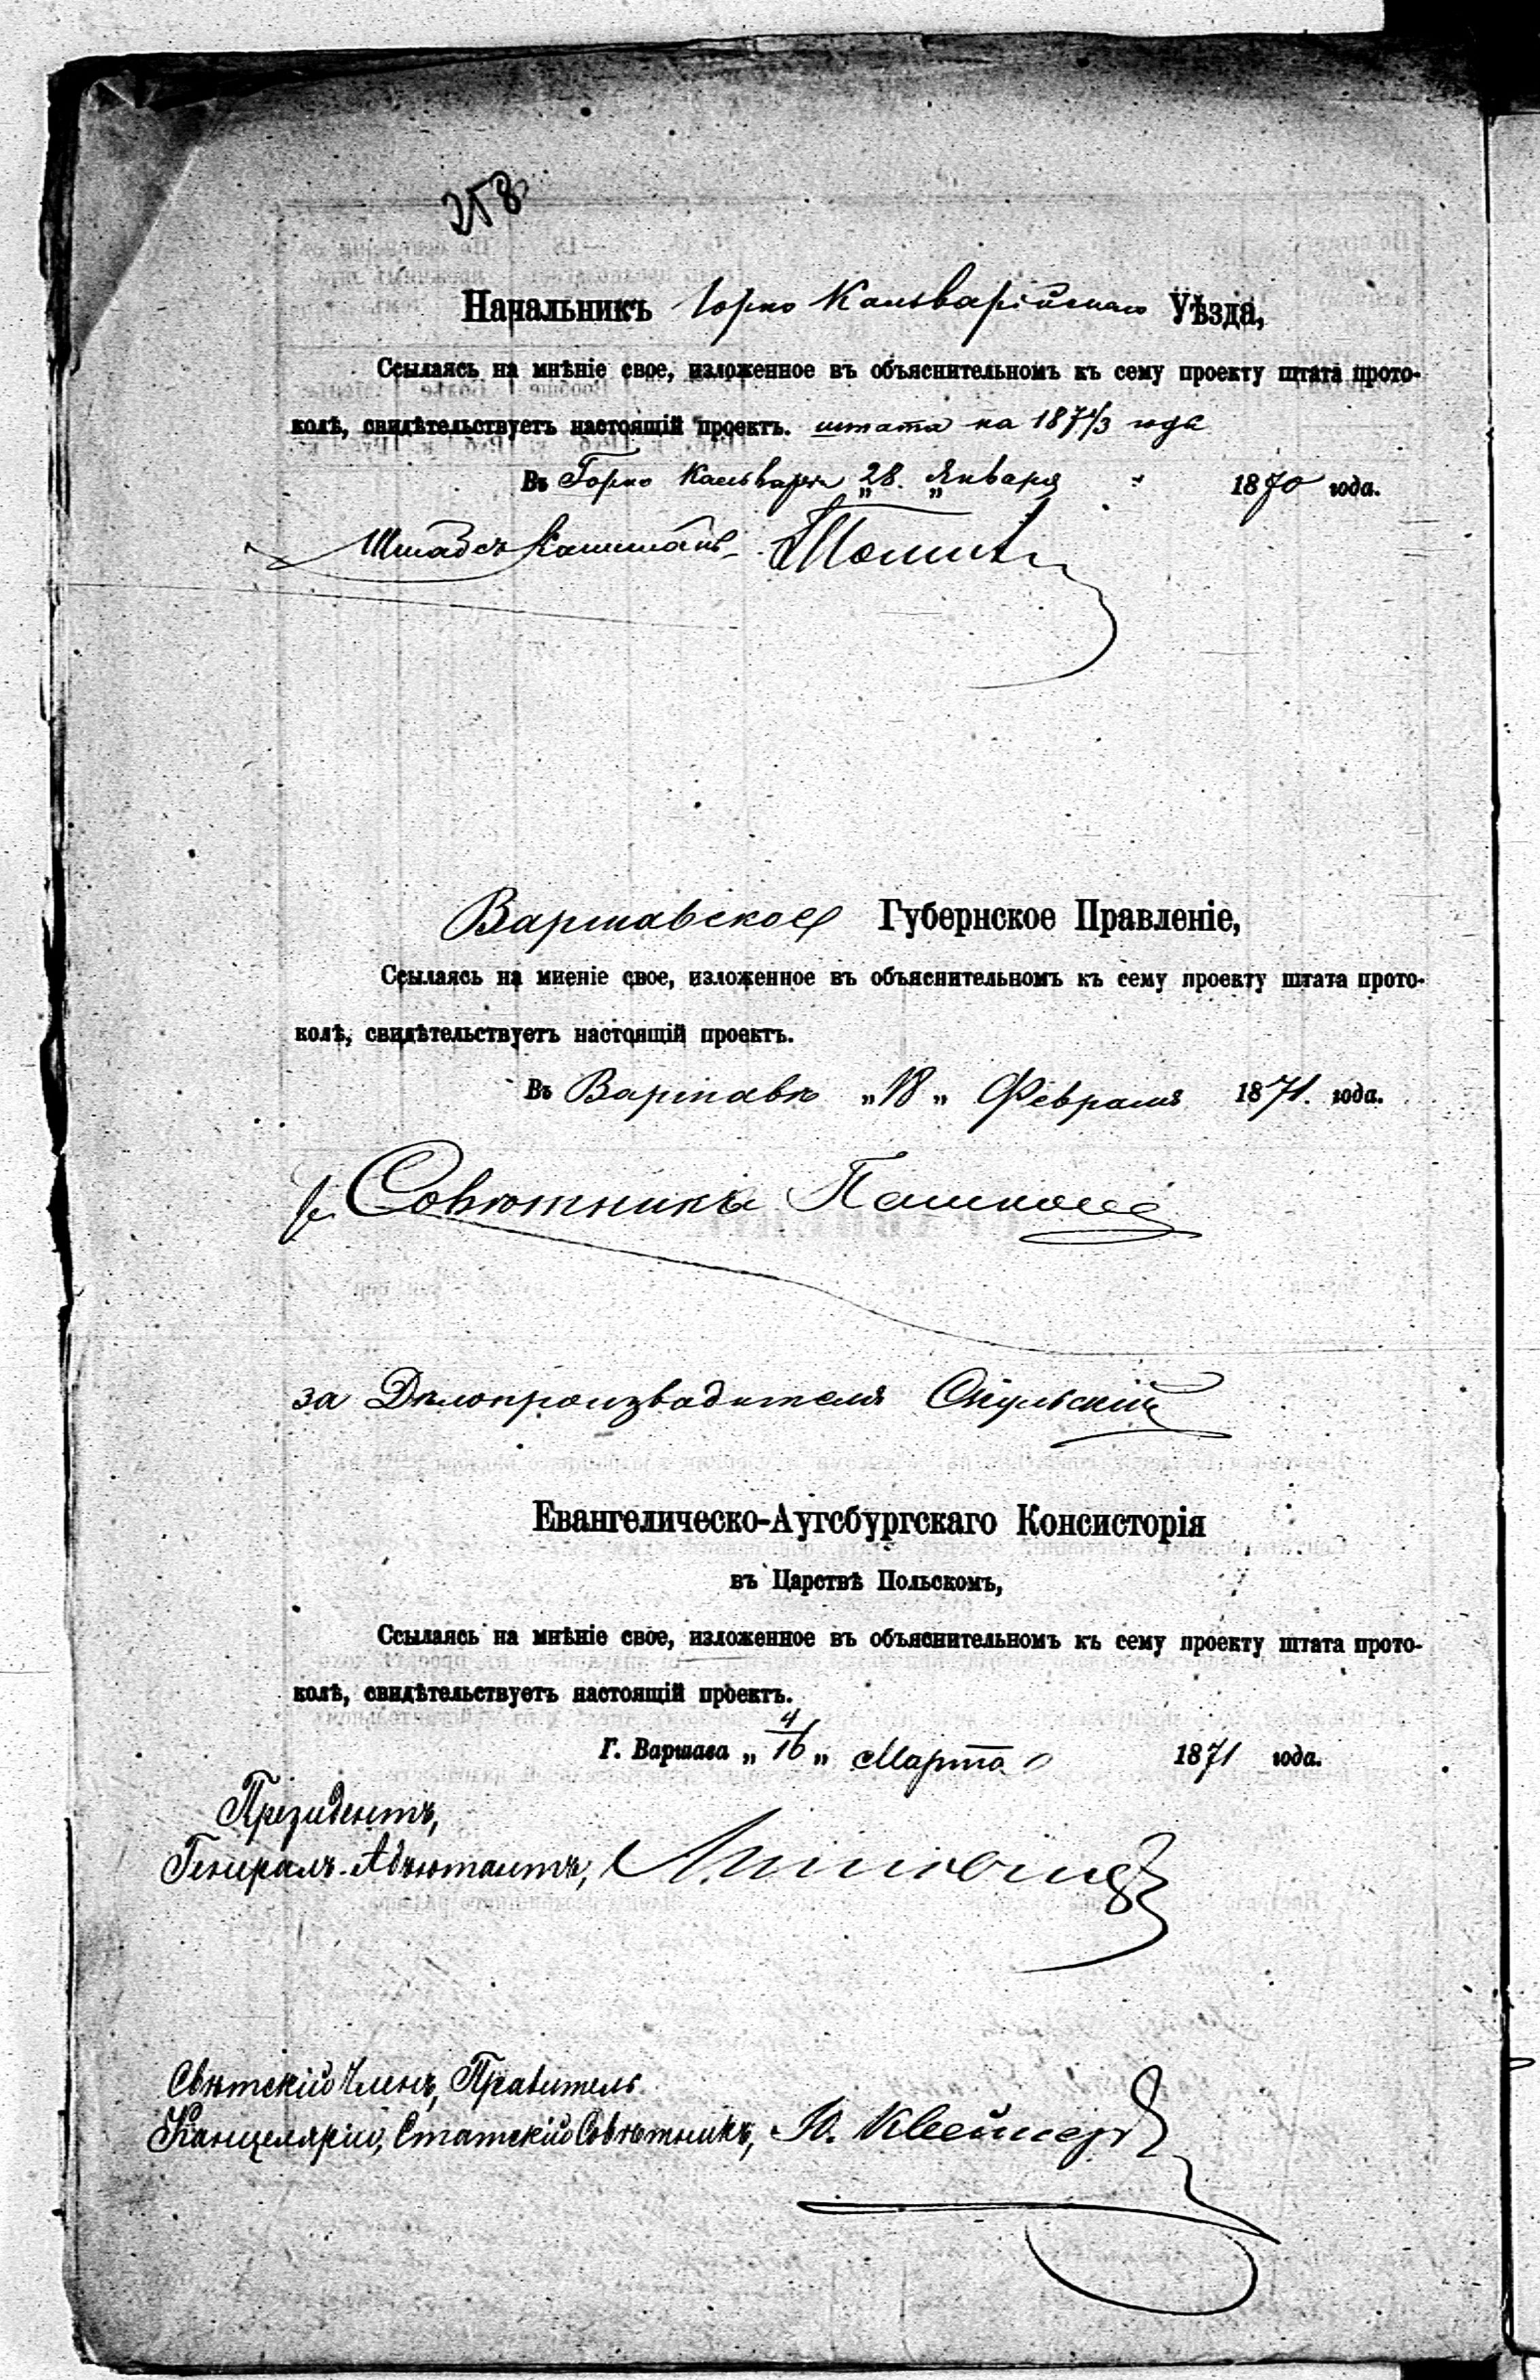 258
Начальникъ Горно Кальварійскаго Уѣзда,
Ссылаясь на мнѣніе свое, изложенное въ объяснительномъ къ сему проекту штата прото-
колѣ, свидѣтельствуетъ настоящій проектъ. штата на 1871/3 года
Въ Горно Кальваріи „28„ Января 1870 года.
Штабсъ Капитанъ
Варшавское Губернское Правленіе,
Ссылаясь на миеніе свое, изложенное въ объяснительномъ къ сему проекту штата прото-
колѣ, свидѣтельствуетъ настоящій проектъ.
Въ Варшавѣ „18„ Февраля 1871. года.
Совѣтникъ
за Дѣлопроизводителя
Евангелическо-Аугсбургскаго Консисторія
въ Царствѣ Польскомъ,
Ссылаясь на мнѣніе свое, изложенное въ объяснительномъ къ сему проекту штата прото-
колѣ, свидѣтельствуетъ настоящій проектъ.
Г. Варшава „4/16„ Марта 1871 года.
Президентъ,
Генералъ-Адъютантъ,
Свѣтскій Членъ, Правитель
Канцеляріи, Статскій Совѣтникъ, Ю.